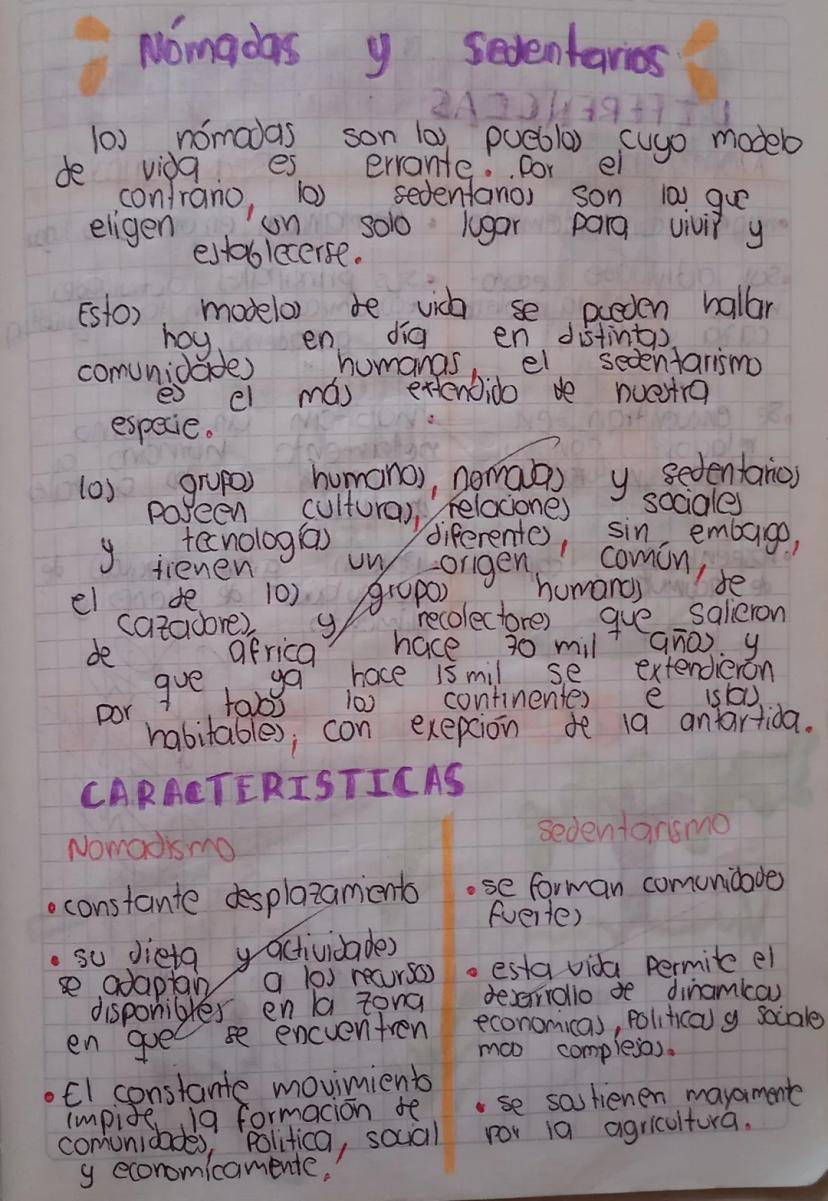 Nómadas y sedentarios
los nómadas son los pueblos cuyo modelo
de vida es errante. Por el
contrario, los sedentarios son los que
eligen un solo lugar para vivir y
establecerse.
Estos modelos de vida se pueden hallar
hoy en día en distintas
comunidades humanas, el sedentarismo
es el más extendido de nuestra
especie.
los grupos humanos, nomadas y sedentarios
poseen culturas, relaciones sociales
y tecnologías diferentes, sin embago,
tienen un origen común,
el de los grupos humanos de
cazadores y recolectores que salieron
de africa hace 70 mil años y
que ya hace 15 mil se extendieron
por todos los continentes e islas
habitables, con exepción de la antartida.
CARACTERISTICAS
Nomadismo
•constante desplazamiento
• su dieta y actividades
se adaptan a los recursos
disponibles en la zona
en que se encuentren
•El constante movimiento
impide la formación de
comunidades, politica, social
y económicamente.
sedentarismo
•se forman comunidades
fuertes
• esta vida permite el
desarrollo de dinamicas
economicas, politicas y sociales
mas complejas.
• se sostienen mayormente
por la agricultura.